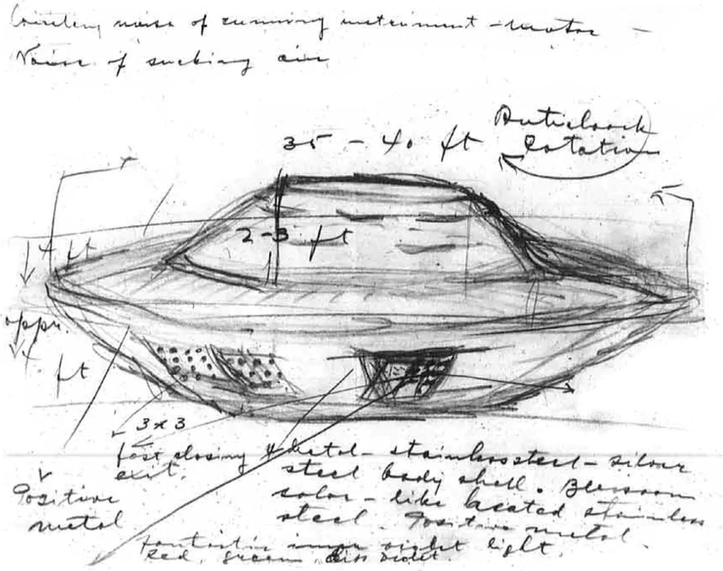 noise of running instrument - motor -
Noise of sucking air
35 - 40 ft
Anticlock
Rotation
4 ft
2-3 ft
appr.
4 ft
3x3
fast closing
exit.
Metal - stainless steel - silver
steel body shell.
color - like heated stainless
steel. Positive metal.
Positive
metal
inner violet light.
red, green, violet.